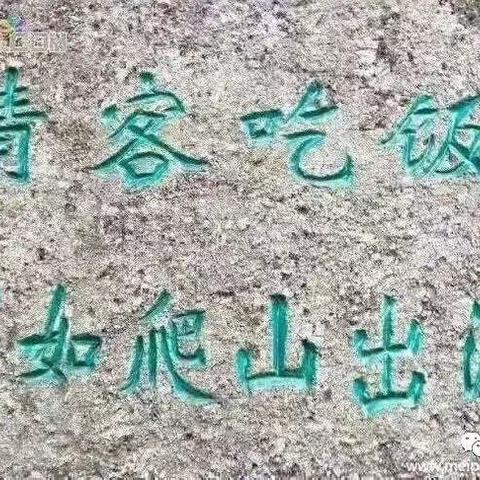 请客吃饭
如爬山出
www.meip